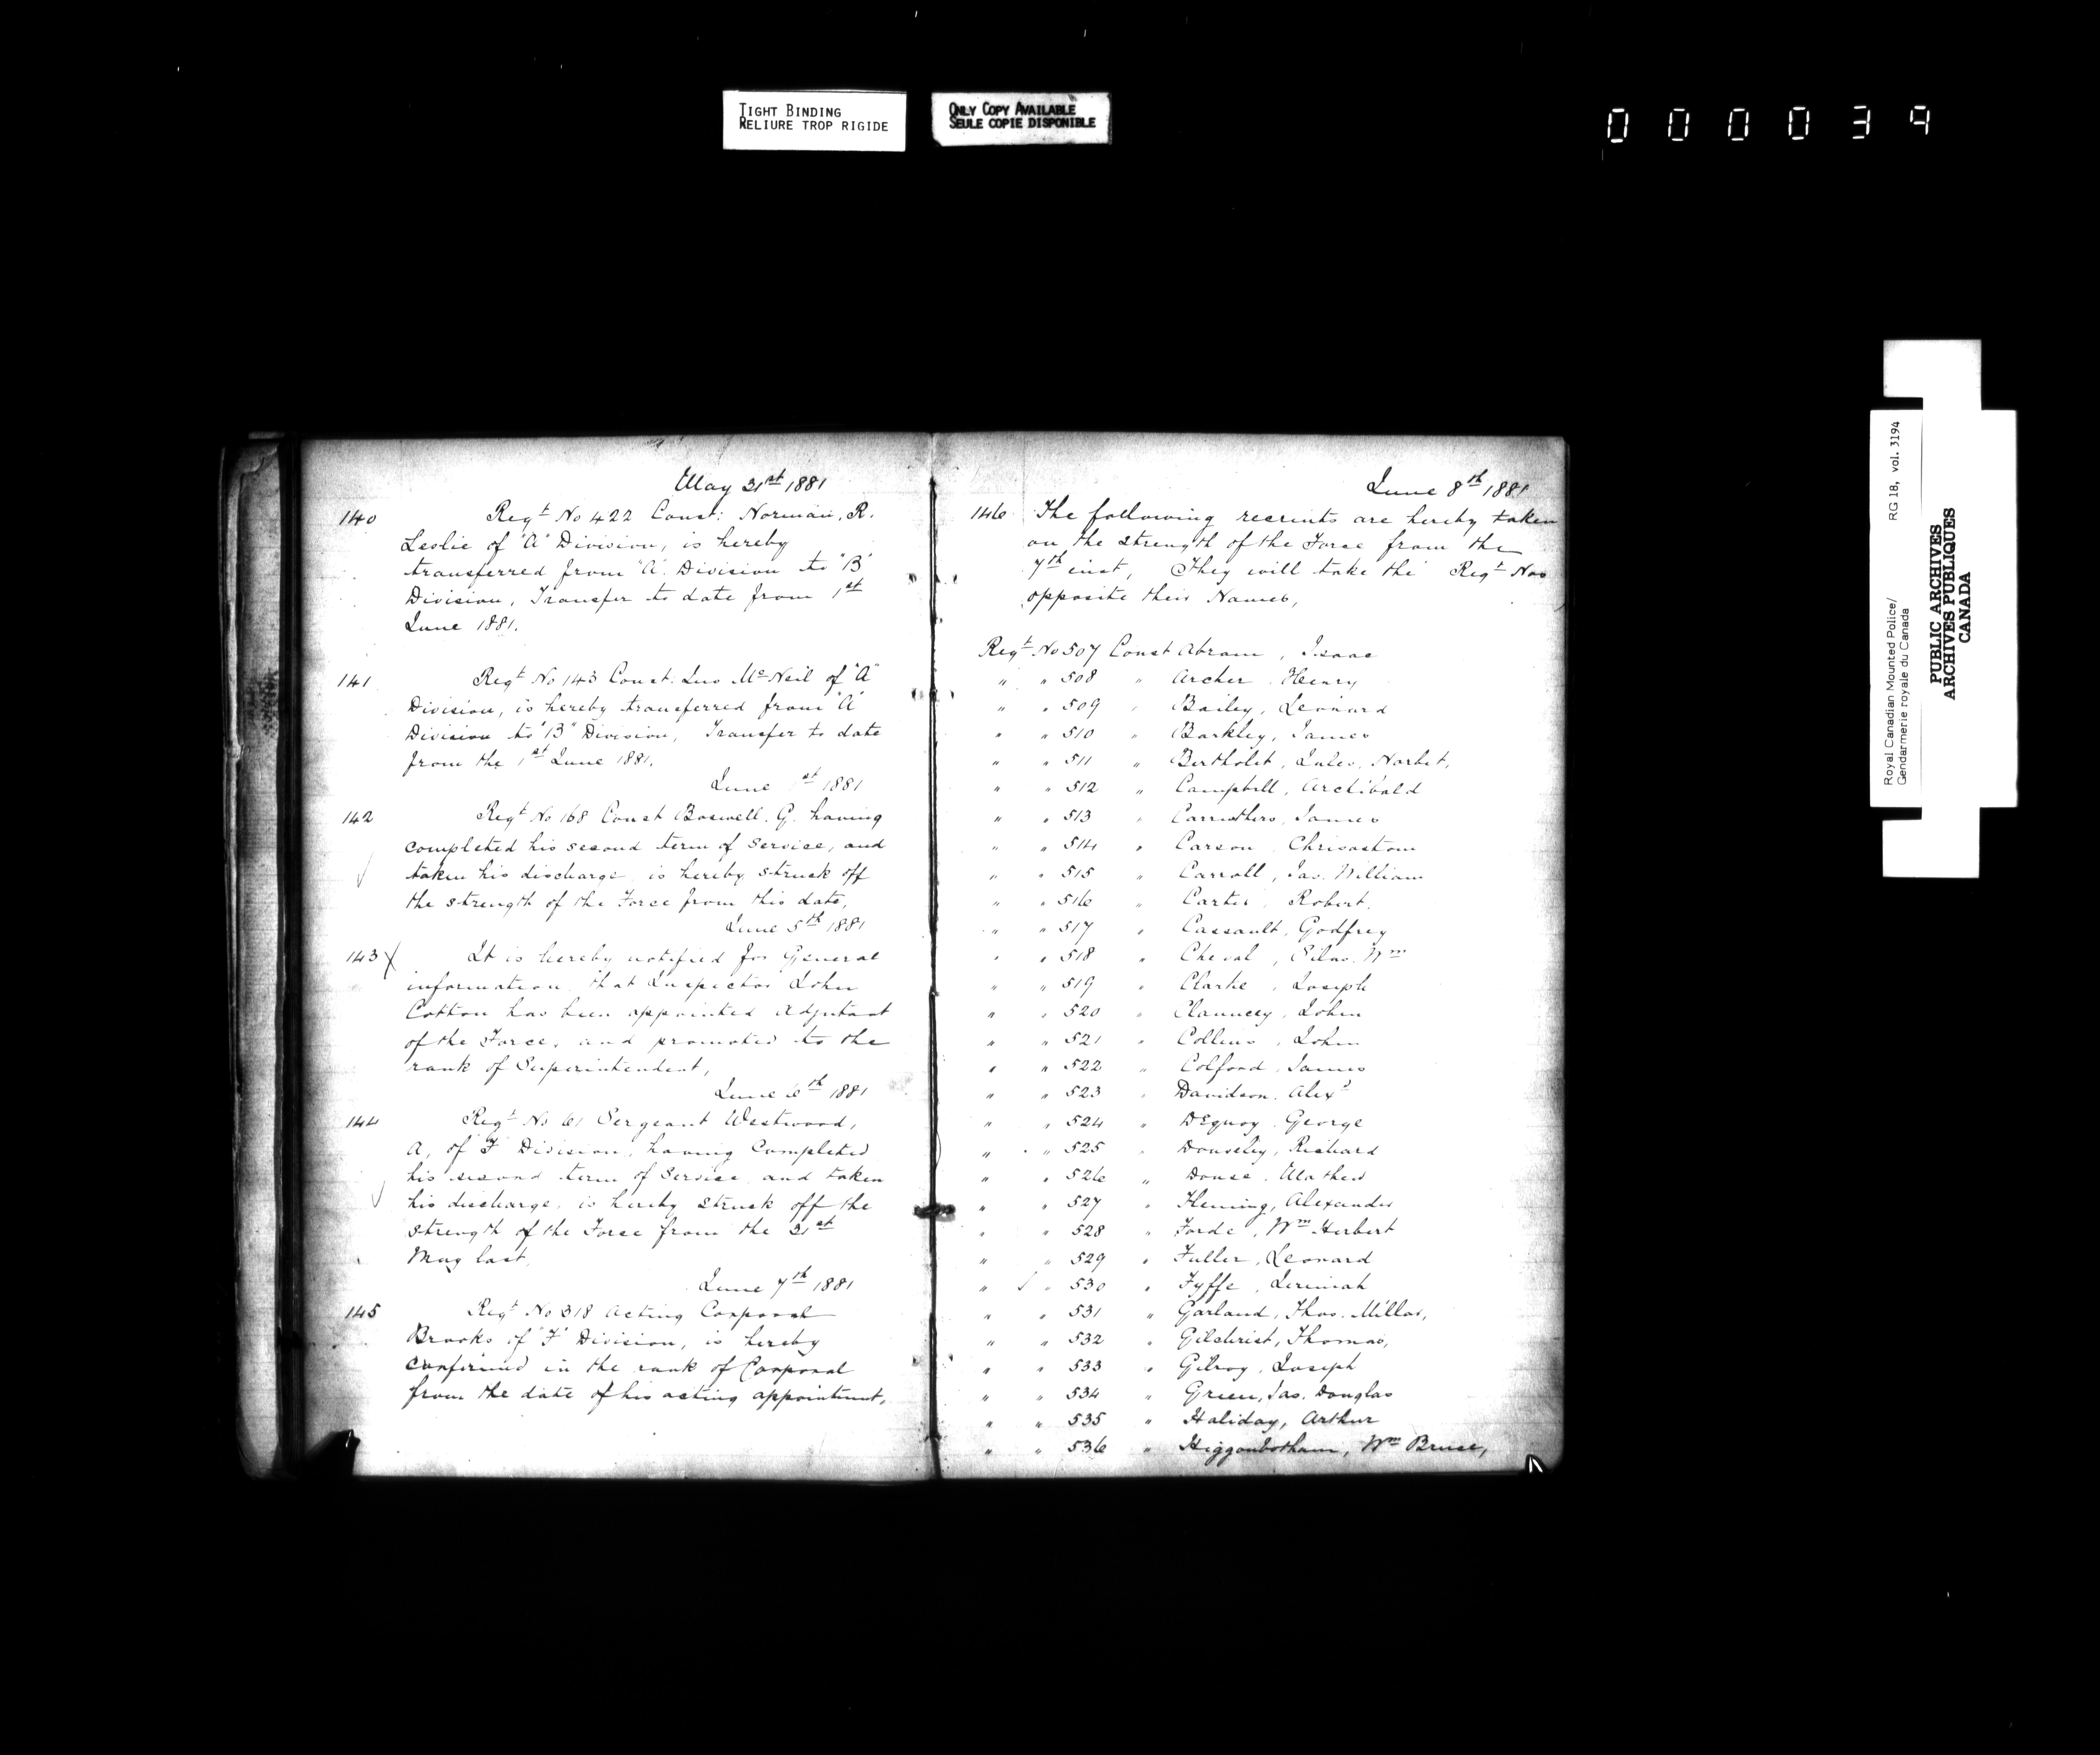 TIGHT BINDING
RELIURE TROP RIGIDE
ONLY COPY AVAILABLE
SEULE COPIE DISPONIBLE
000039
May 31st 1881
140 Regt No 422 Const: Norman, R.
Leslie of "A" Division, is hereby
transferred from "A" Division to "B"
Division, Transfer to date from 1st
June 1881.
141 Regt No 143 Const. Jno McNeil of "A"
Division, is hereby transferred from "A"
Division to "B" Division, Transfer to date
from the 1st June 1881.
June 1st 1881
142 Regt No 168 Const Boswell. G. having
completed his second term of Service, and
taken his discharge is hereby struck off
the strength of the Force from this date,
June 5th 1881
143 It is hereby notified for General
information that Inspector John
Cotton has been appointed Adjutant
of the Force, and promoted to the
rank of Superintendent,
June 6th 1881
144 Regt No 61 Sergeant Westwood,
A, of "F" Division, having Completed
his second term of Service and taken
his discharge, is hereby struck off the
strength of the Force from the 31st
May last,
June 7th 1881
145 Regt No 318 Acting Corporal
Brooks of "F" Division, is hereby
confirmed in the rank of Corporal
from the date of his acting appointment,
June 8th 1881
146 The following recruits are hereby taken
on the strength of the Force from the
7th inst, They will take the Regt Nos
opposite their Names,
Regt No 507 Const Abram, Isaac
" " 508 " Archer, Henry
" " 509 " Bailey, Leonard
" " 510 " Barkley, James
" " 511 " Bertholet, Jules, Norbet,
" " 512 " Campbell, Archibald
" " 513 " Carruthers, James
" " 514 " Carson Chrisostom
" " 515 " Carroll, Jas. William
" " 516 " Carter, Robert.
" " 517 " Cassault, Godfrey
" " 518 " Cheval, Silas. Wm
" " 519 " Clarke, Joseph
" " 520 " Clauncey, John
" " 521 " Collins, John
" " 522 " Colford, James
" " 523 " Davidson, Alexr
" " 524 " DEguoy George
" " 525 " Richard
" " 526 " Douse, Mathew
" " 527 " Fleming, Alexander
" " 528 " Forde, Wm Herbert
" " 529 " Fuller, Leonard
" " 530 " Fyffe, Jerimah
" " 531 " Garland, Thos. Millar,
" " 532 " Gilchrist, Thomas,
" " 533 " Gilroy, Joseph
" " 534 " Green, Jas. Douglas
" " 535 " Haliday, Arthur
" " 536 " Higgonbotham, Wm Bruce,
Royal Canadian Mounted Police/ RG 18, vol. 3194
Gendarmerie royale du Canada
PUBLIC ARCHIVES
ARCHIVES PUBLIQUES
CANADA